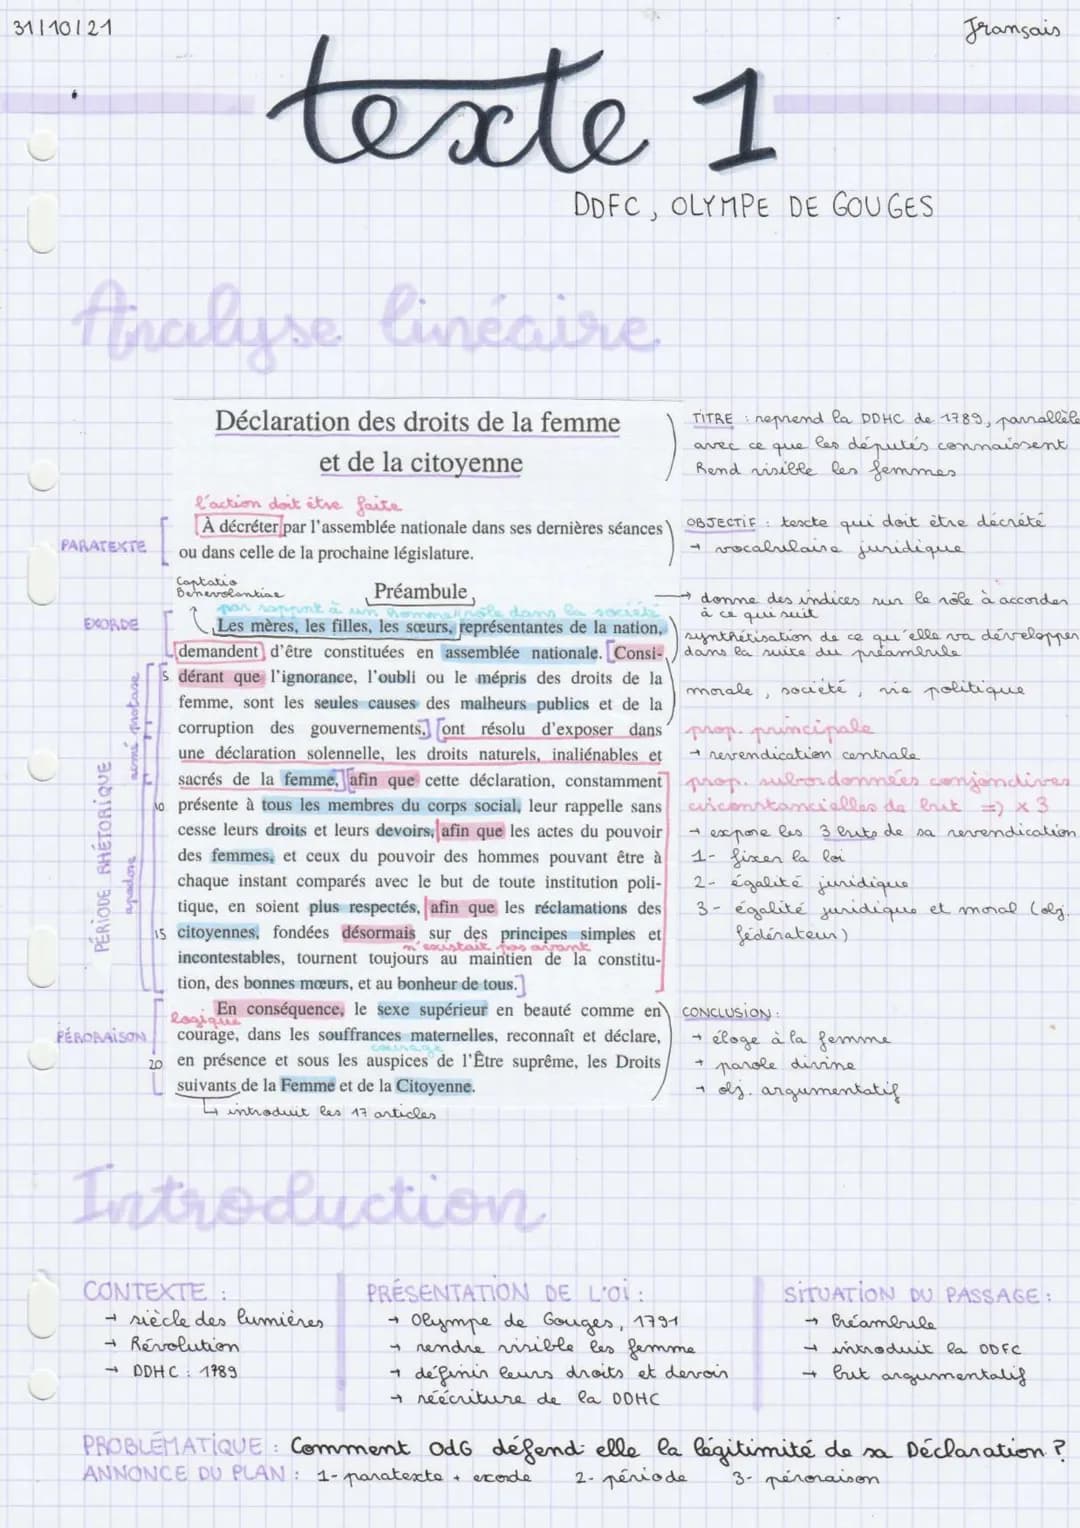 31/10/21
Français
texte 1
DDFC, OLYMPE DE GOUGES
Analyse linéaire
Déclaration des droits de la femme
et de la citoyenne
TITRE : reprend la DDHC de 1789, parrallèle
avec ce que les députés connaissent
Rend visible les femmes
l'action doit être faite
À décréter par l'assemblée nationale dans ses dernières séances
ou dans celle de la prochaine législature.
PARATEXTE
OBJECTIF : texte qui doit être décrété
→ vocabulaire juridique
Captatio
Benevolentiae
Préambule
→ donne des indices sur le rôle à accorder
à ce qui suit
par rapport à un homme/rôle dans la société
EXORDE
Les mères, les filles, les sœurs, représentantes de la nation,
demandent d'être constituées en assemblée nationale. [Consi-
synthétisation de ce qu'elle va développer
dans la suite du préambule
5 dérant que l'ignorance, l'oubli ou le mépris des droits de la
femme, sont les seules causes des malheurs publics et de la
corruption des gouvernements,] [ont résolu d'exposer dans
une déclaration solennelle, les droits naturels, inaliénables et
sacrés de la femme,] [afin que cette déclaration, constamment
10 présente à tous les membres du corps social, leur rappelle sans
cesse leurs droits et leurs devoirs, afin que les actes du pouvoir
des femmes, et ceux du pouvoir des hommes pouvant être à
chaque instant comparés avec le but de toute institution poli-
tique, en soient plus respectés, afin que les réclamations des
15 citoyennes, fondées désormais sur des principes simples et
n'existait pas avant
incontestables, tournent toujours au maintien de la constitu-
tion, des bonnes mœurs, et au bonheur de tous.]
PÉRIODE RHÉTORIQUE
protase
apodose
morale, société, vie politique
prop. principale
→ revendication centrale
prop. subordonnées conjonctives
circonstancielles de but => x 3
→ expose les 3 buts de sa revendication
1- fixer la loi
2- égalité juridique
3- égalité juridique et moral (obj.
fédérateur)
PÉRORAISON
logique
En conséquence, le sexe supérieur en beauté comme en
courage, dans les souffrances maternelles, reconnaît et déclare,
courage
20 en présence et sous les auspices de l'Être suprême, les Droits
suivants de la Femme et de la Citoyenne.
↳ introduit les 17 articles
CONCLUSION :
→ éloge à la femme
→ parole divine
→ obj. argumentatif
Introduction
CONTEXTE :
→ siècle des lumières
→ Révolution
→ DDHC : 1789
PRÉSENTATION DE L'OI :
→ Olympe de Gouges, 1791
→ rendre visible les femme
→ définir leurs droits et devoir
→ réécriture de la DDHC
SITUATION DU PASSAGE :
→ Préambule
→ introduit la DDFC
→ but argumentatif
PROBLÉMATIQUE : Comment OdG défend elle la légitimité de sa Déclaration ?
ANNONCE DU PLAN : 1- paratexte + exorde 2- période 3- péroraison